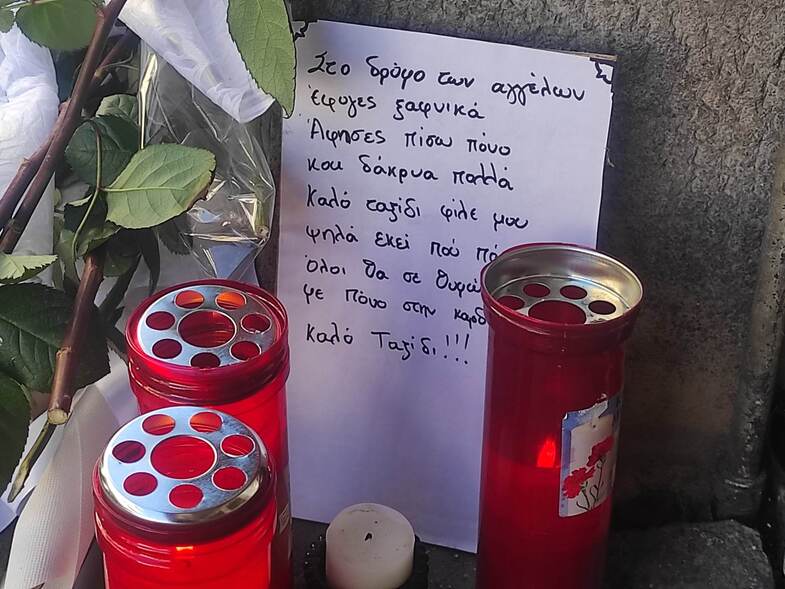 Στο δρόμο των αγγέλων
έφυγες ξαφνικά
Άφησες πίσω πόνο
και δάκρυα πολλά
Καλό ταξίδι φίλε μου
ψηλά εκεί πού
όλοι θα σε
με πόνο στην
Καλό Ταξίδι!!!